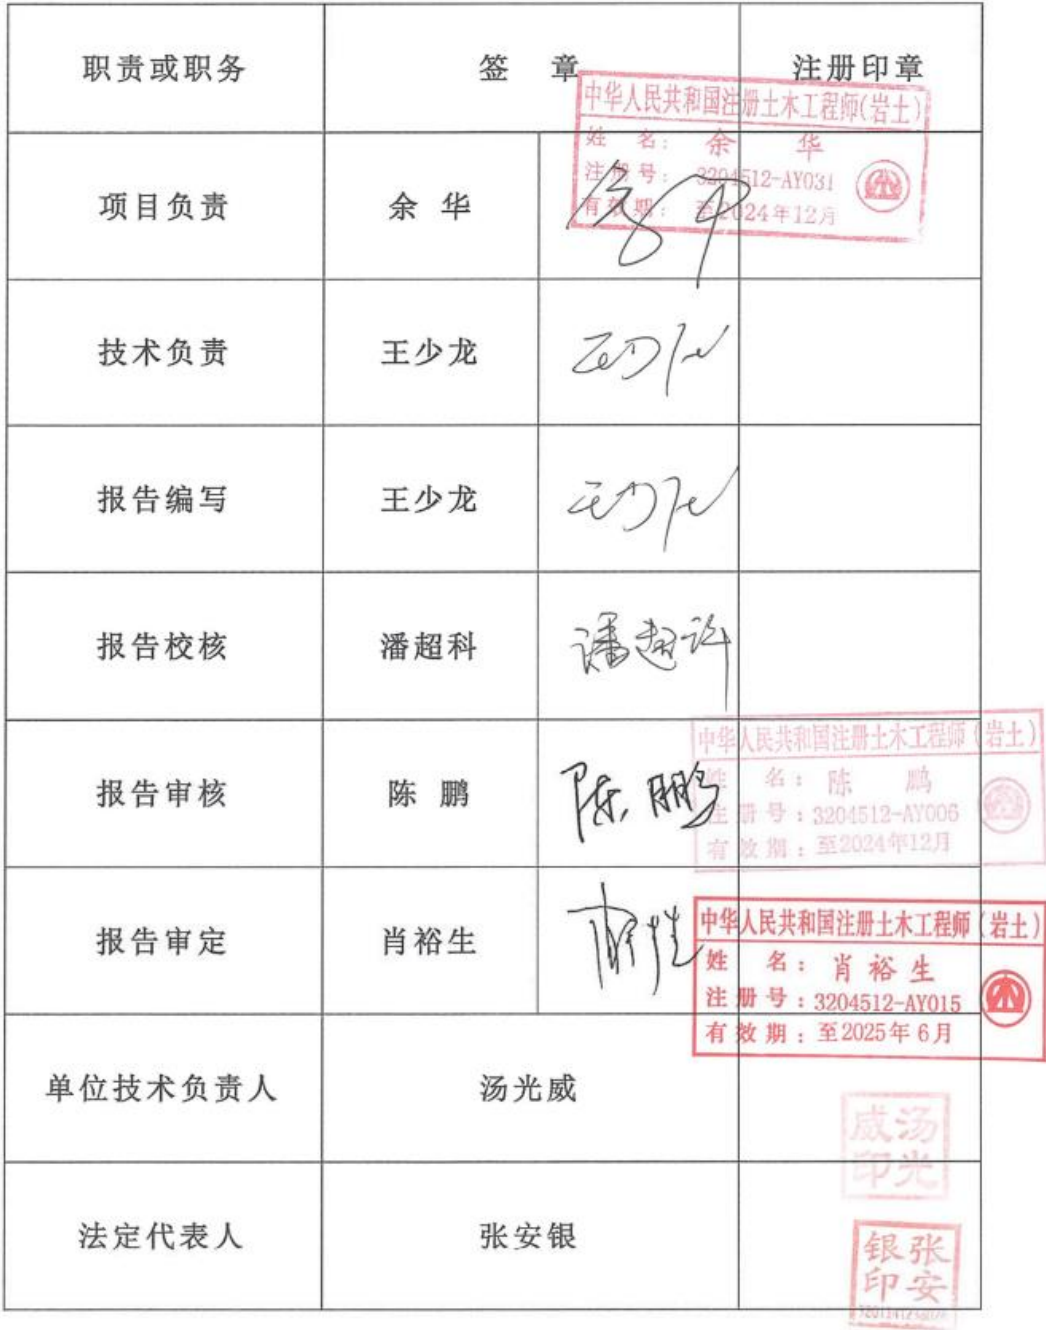 职责或职务 签 章 注册印章
中华人民共和国注册土木工程师(岩土)
姓 名: 余 华
注册号: 3204512-AY031
有效期: 至2024年12月
项目负责 余 华
技术负责 王少龙
报告编写 王少龙
报告校核 潘超科
中华人民共和国注册土木工程师(岩土)
姓 名: 陈 鹏
注册号: 3204512-AY006
有效期: 至2024年12月
报告审核 陈 鹏 陈鹏
报告审定 肖裕生
中华人民共和国注册土木工程师(岩土)
姓 名: 肖裕生
注册号: 3204512-AY015
有效期: 至2025年6月
单位技术负责人 汤光威
汤光威印
法定代表人 张安银
张安银印